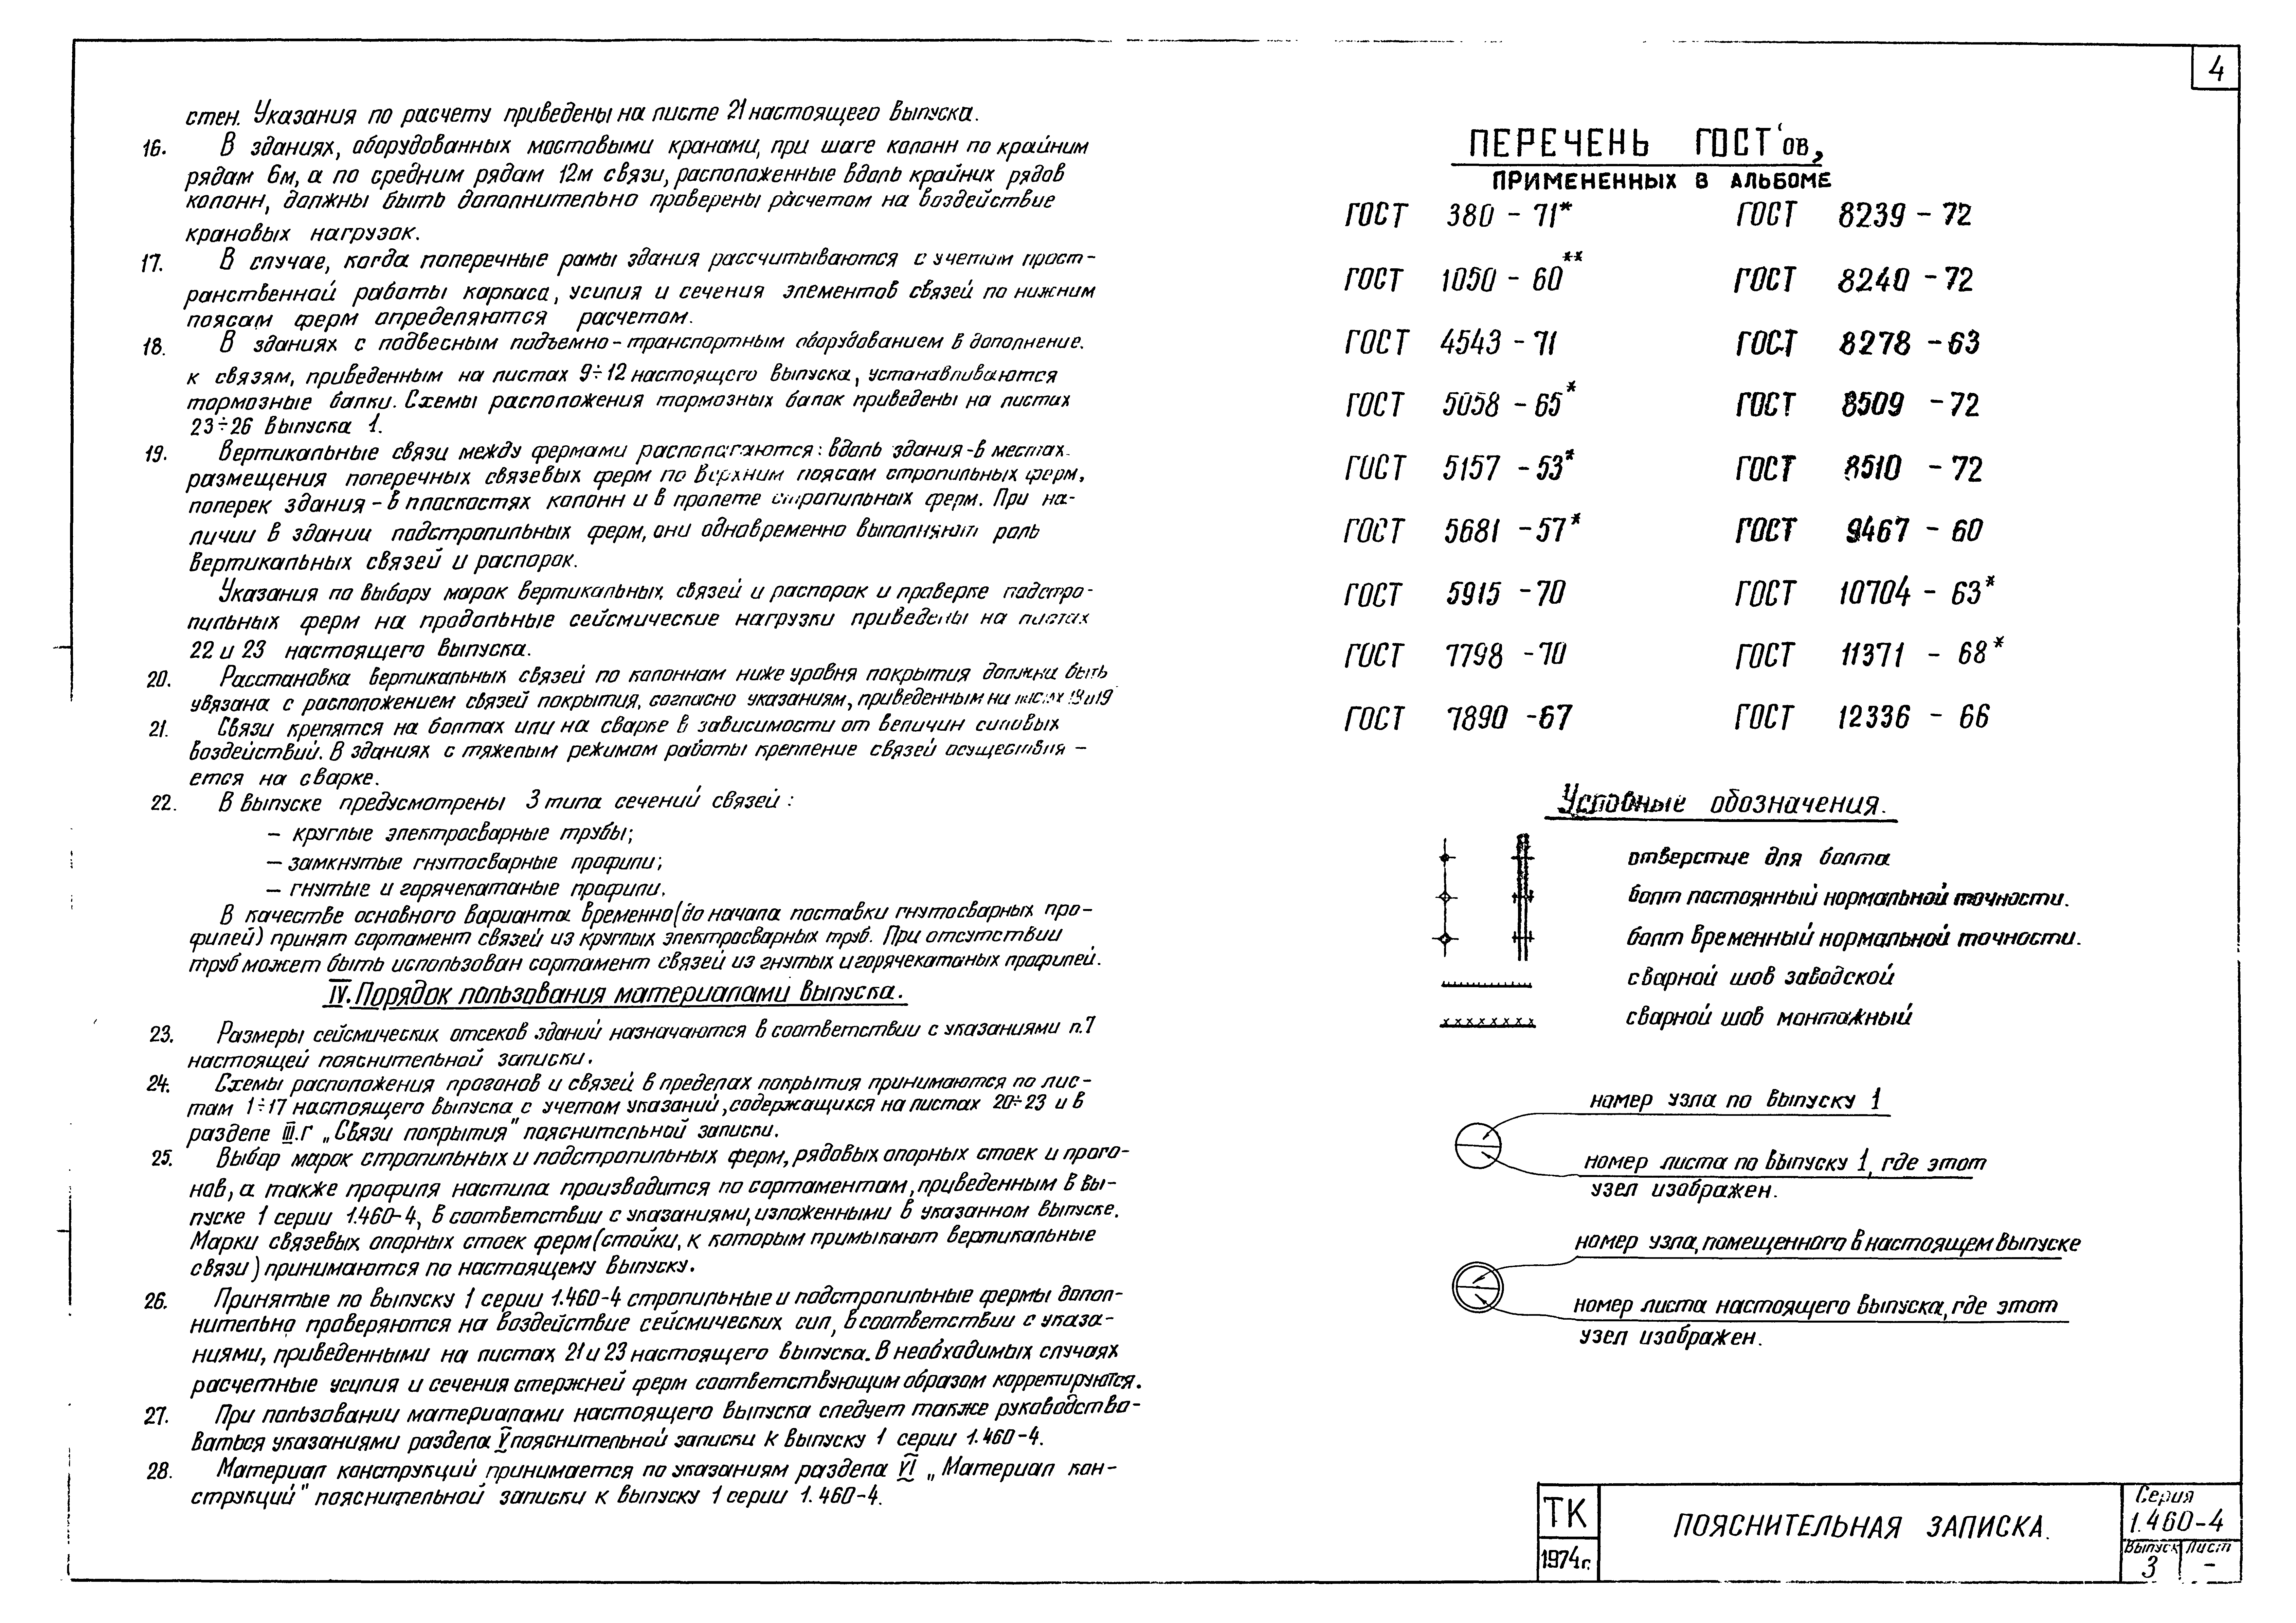 4
стен. Указания по расчету приведены на листе 21 настоящего выпуска.
16. В зданиях, оборудованных мостовыми кранами, при шаге колонн по крайним
рядам 6м, а по средним рядам 12м связи, расположенные вдоль крайних рядов
колонн, должны быть дополнительно проверены расчетом на воздействие
крановых нагрузок.
17. В случае, когда поперечные рамы здания рассчитываются с учетом прост-
ранственной работы каркаса, усилия и сечения элементов связей по нижним
поясам ферм определяются расчетом.
18. В зданиях с подвесным подъемно-транспортным оборудованием в дополнение.
к связям, приведенным на листах 9÷12 настоящего выпуска, устанавливаются
тормозные балки. Схемы расположения тормозных балок приведены на листах
23÷26 выпуска 1.
19. Вертикальные связи между фермами располагаются: вдоль здания-в местах
размещения поперечных связевых ферм по верхним поясам стропильных ферм,
поперек здания - в плоскостях колонн и в пролете стропильных ферм. При на-
личии в здании подстропильных ферм, они одновременно выполняют роль
вертикальных связей и распорок.
Указания по выбору марок вертикальных связей и распорок и проверке подстро-
пильных ферм на продольные сейсмические нагрузки приведены на листах
22 и 23 настоящего выпуска.
20. Расстановка вертикальных связей по колоннам ниже уровня покрытия должна быть
увязана с расположением связей покрытия, согласно указаниям, приведенным на листах 18и19
21. Связи крепятся на болтах или на сварке в зависимости от величин силовых
воздействий. В зданиях с тяжелым режимом работы крепление связей осуществля -
ется на сварке.
22. В выпуске предусмотрены 3 типа сечений связей :
- круглые электросварные трубы;
- замкнутые гнутосварные профили;
- гнутые и горячекатаные профили.
В качестве основного варианта временно (до начала поставки гнутосварных про-
филей) принят сортамент связей из круглых электросварных труб. При отсутствии
труб может быть использован сортамент связей из гнутых и горячекатаных профилей.
IV. Порядок пользования материалами выпуска.
23. Размеры сейсмических отсеков зданий назначаются в соответствии с указаниями п.7
настоящей пояснительной записки.
24. Схемы расположения прогонов и связей в пределах покрытия принимаются по лис-
там 1÷17 настоящего выпуска с учетом указаний, содержащихся на листах 20÷23 и в
разделе III.г „Связи покрытия" пояснительной записки.
25. Выбор марок стропильных и подстропильных ферм, рядовых опорных стоек и прого-
нов, а также профиля настила производится по сортаментам, приведенным в вы-
пуске 1 серии 1.460-4, в соответствии с указаниями, изложенными в указанном выпуске.
Марки связевых опорных стоек ферм (стойки, к которым примыкают вертикальные
связи) принимаются по настоящему выпуску.
26. Принятые по выпуску 1 серии 1.460-4 стропильные и подстропильные фермы допол-
нительно проверяются на воздействие сейсмических сил, в соответствии с указа-
ниями, приведенными на листах 21 и 23 настоящего выпуска. В необходимых случаях
расчетные усилия и сечения стержней ферм соответствующим образом корректируются.
27. При пользовании материалами настоящего выпуска следует также руководство-
ваться указаниями раздела V пояснительной записки к выпуску 1 серии 1.460-4.
28. Материал конструкций принимается по указаниям раздела VI „Материал кон-
струкций" пояснительной записки к выпуску 1 серии 1.460-4.
ПЕРЕЧЕНЬ ГОСТ'ов,
ПРИМЕНЕННЫХ В АЛЬБОМЕ
ГОСТ 380 - 71* ГОСТ 8239 - 72
ГОСТ 1050 - 60** ГОСТ 8240 - 72
ГОСТ 4543 - 71 ГОСТ 8278 - 63
ГОСТ 5058 - 65* ГОСТ 8509 - 72
ГОСТ 5157 - 53* ГОСТ 8510 - 72
ГОСТ 5681 - 57* ГОСТ 9467 - 60
ГОСТ 5915 - 70 ГОСТ 10704 - 63*
ГОСТ 7798 - 70 ГОСТ 11371 - 68*
ГОСТ 7890 - 67 ГОСТ 12336 - 66
Условные обозначения.
отверстие для болта
болт постоянный нормальной точности.
болт временный нормальной точности.
сварной шов заводской
сварной шов монтажный
номер узла по выпуску 1
номер листа по выпуску 1, где этот
узел изображен.
номер узла, помещенного в настоящем выпуске
номер листа настоящего выпуска, где этот
узел изображен.
ТК
1974г.
ПОЯСНИТЕЛЬНАЯ ЗАПИСКА.
Серия
1.460-4
Выпуск Лист
3 -